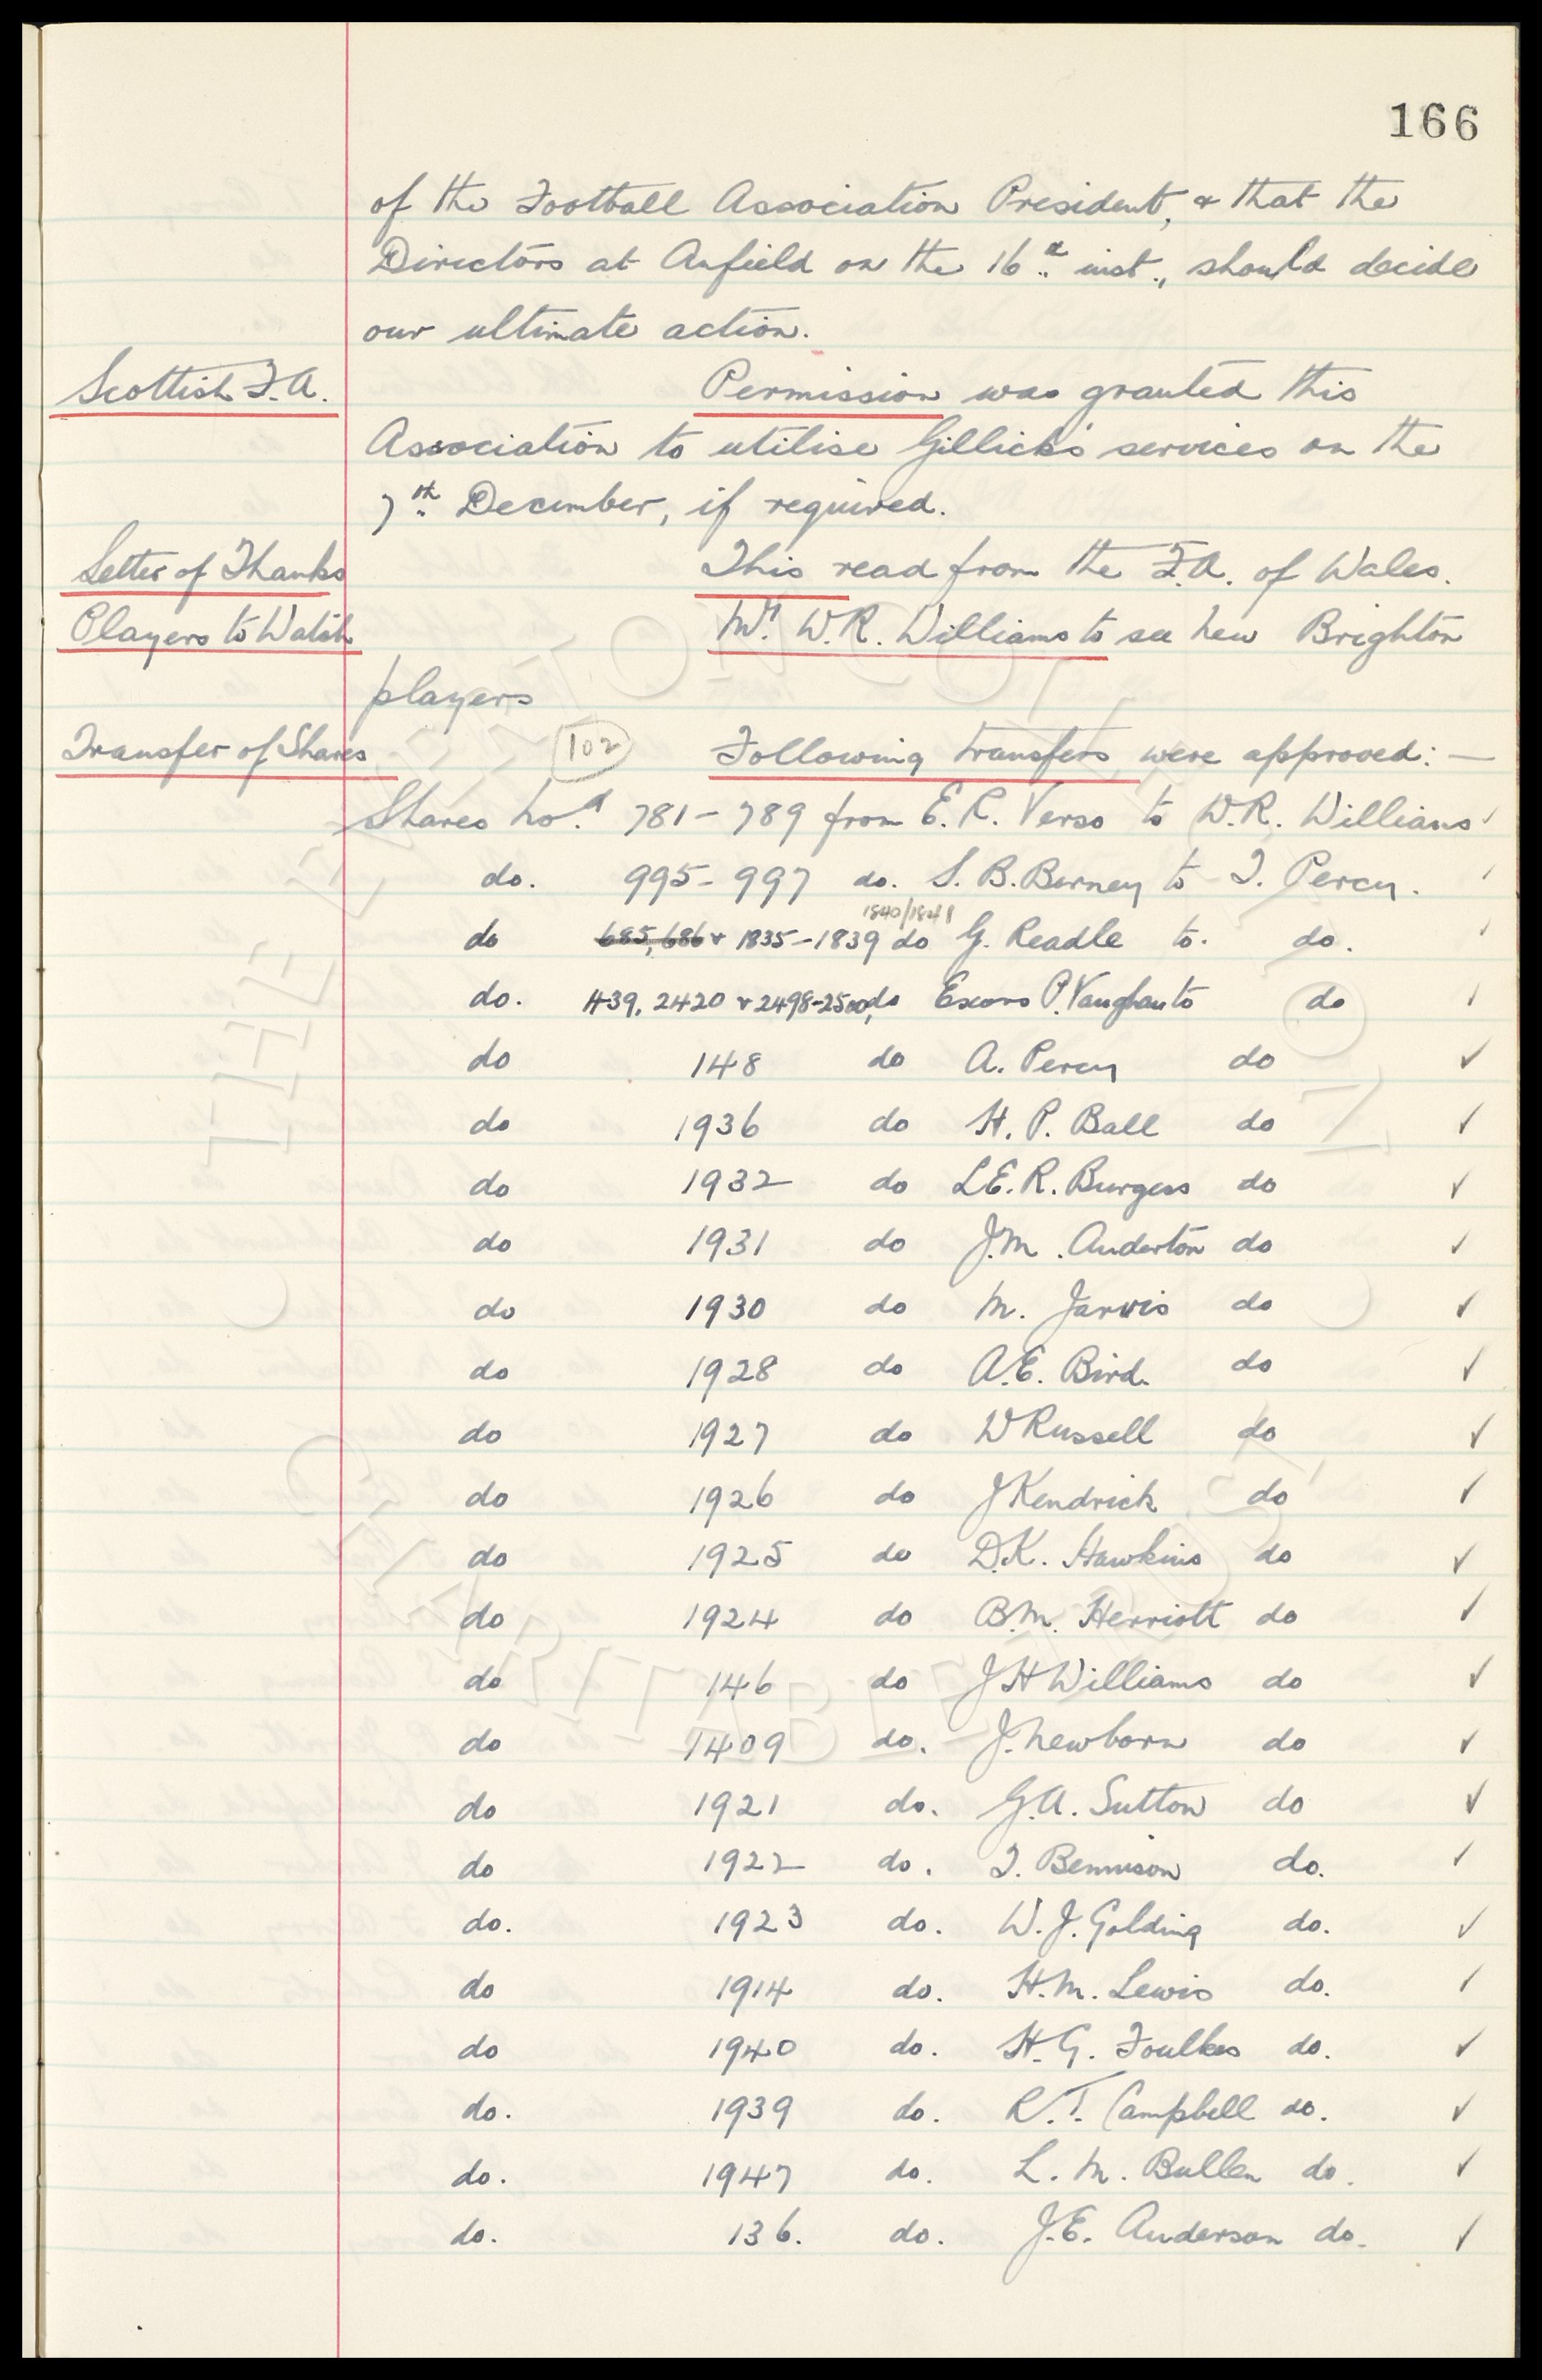 166
of the Football Association President, & that the
Directors at Anfield on the 16th inst., should decide
our ultimate action.
Scottish F.A. Permission was granted this
Association to utilise Gillick's services on the
7th December, if required.
Letter of Thanks This read from the F.A. of Wales.
Players to Watch Mr. W.R. Williams to see New Brighton
players
Transfer of Shares 102 Following transfers were approved: —
Shares No.s 781 - 789 from E.R. Verso to W.R. Williams ✓
do. 995 - 997 do. S.B. Burney to T. Percy. ✓
1840/1841
do 685, 686 & 1835 - 1839 do G. Readle to. do. ✓
do. 1439, 2420 & 2498-2500, do Excors P. Vaughan to do ✓
do 148 do A. Percy do ✓
do 1936 do H. P. Ball do ✓
do 1932 do L.E.R. Burgess do ✓
do 1931 do J.M. Anderton do ✓
do 1930 do M. Jarvis do ✓
do 1928 do A.E. Bird. do ✓
do 1927 do W Russell do ✓
do 1926 do J Kendrick do ✓
do 1925 do D.K. Hawkins do ✓
do 1924 do B.M. Herriott do ✓
do 146 do J H Williams do ✓
do 1409 do. J. Newborn do ✓
do 1921 do. G.A. Sutton do ✓
do 1922 do. T. Bennison do. ✓
do. 1923 do. W.J. Golding do. ✓
do 1914 do. H.M. Lewis do. ✓
do 1940 do. H.G. Foulkes do. ✓
do. 1939 do. R.T. Campbell do. ✓
do. 1947 do. L.M. Bullen do. ✓
do. 136. do. J.E. Anderson do. ✓
THE EVERTON COLLECTION
CHARITABLE TRUST